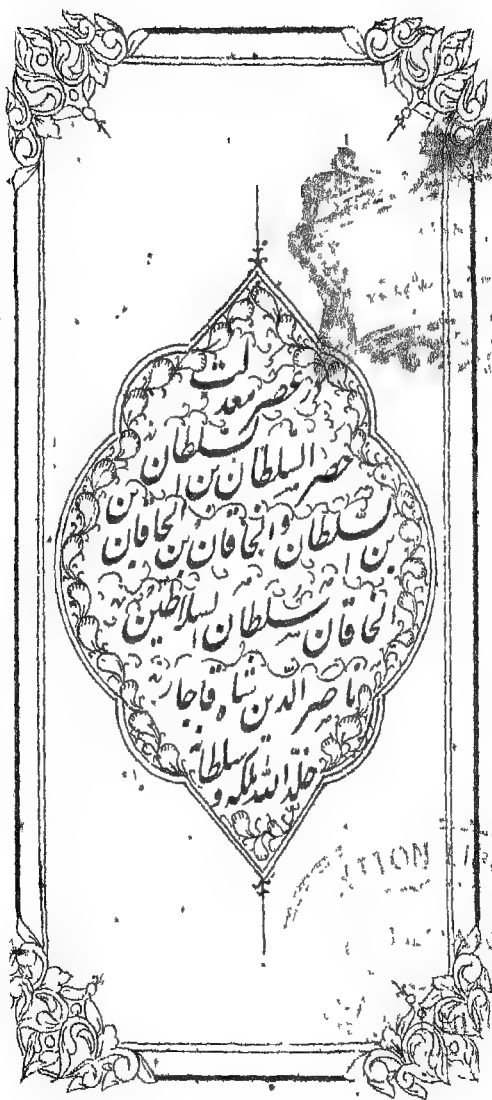 در عصر معدلت
حضر السلطان بن السلطان
بن السلطان والخاقان بن الخاقان بن
الخاقان سلطان السلاطین
ناصرالدین شاه قاجار
خلد الله ملکه و سلطانه
TION